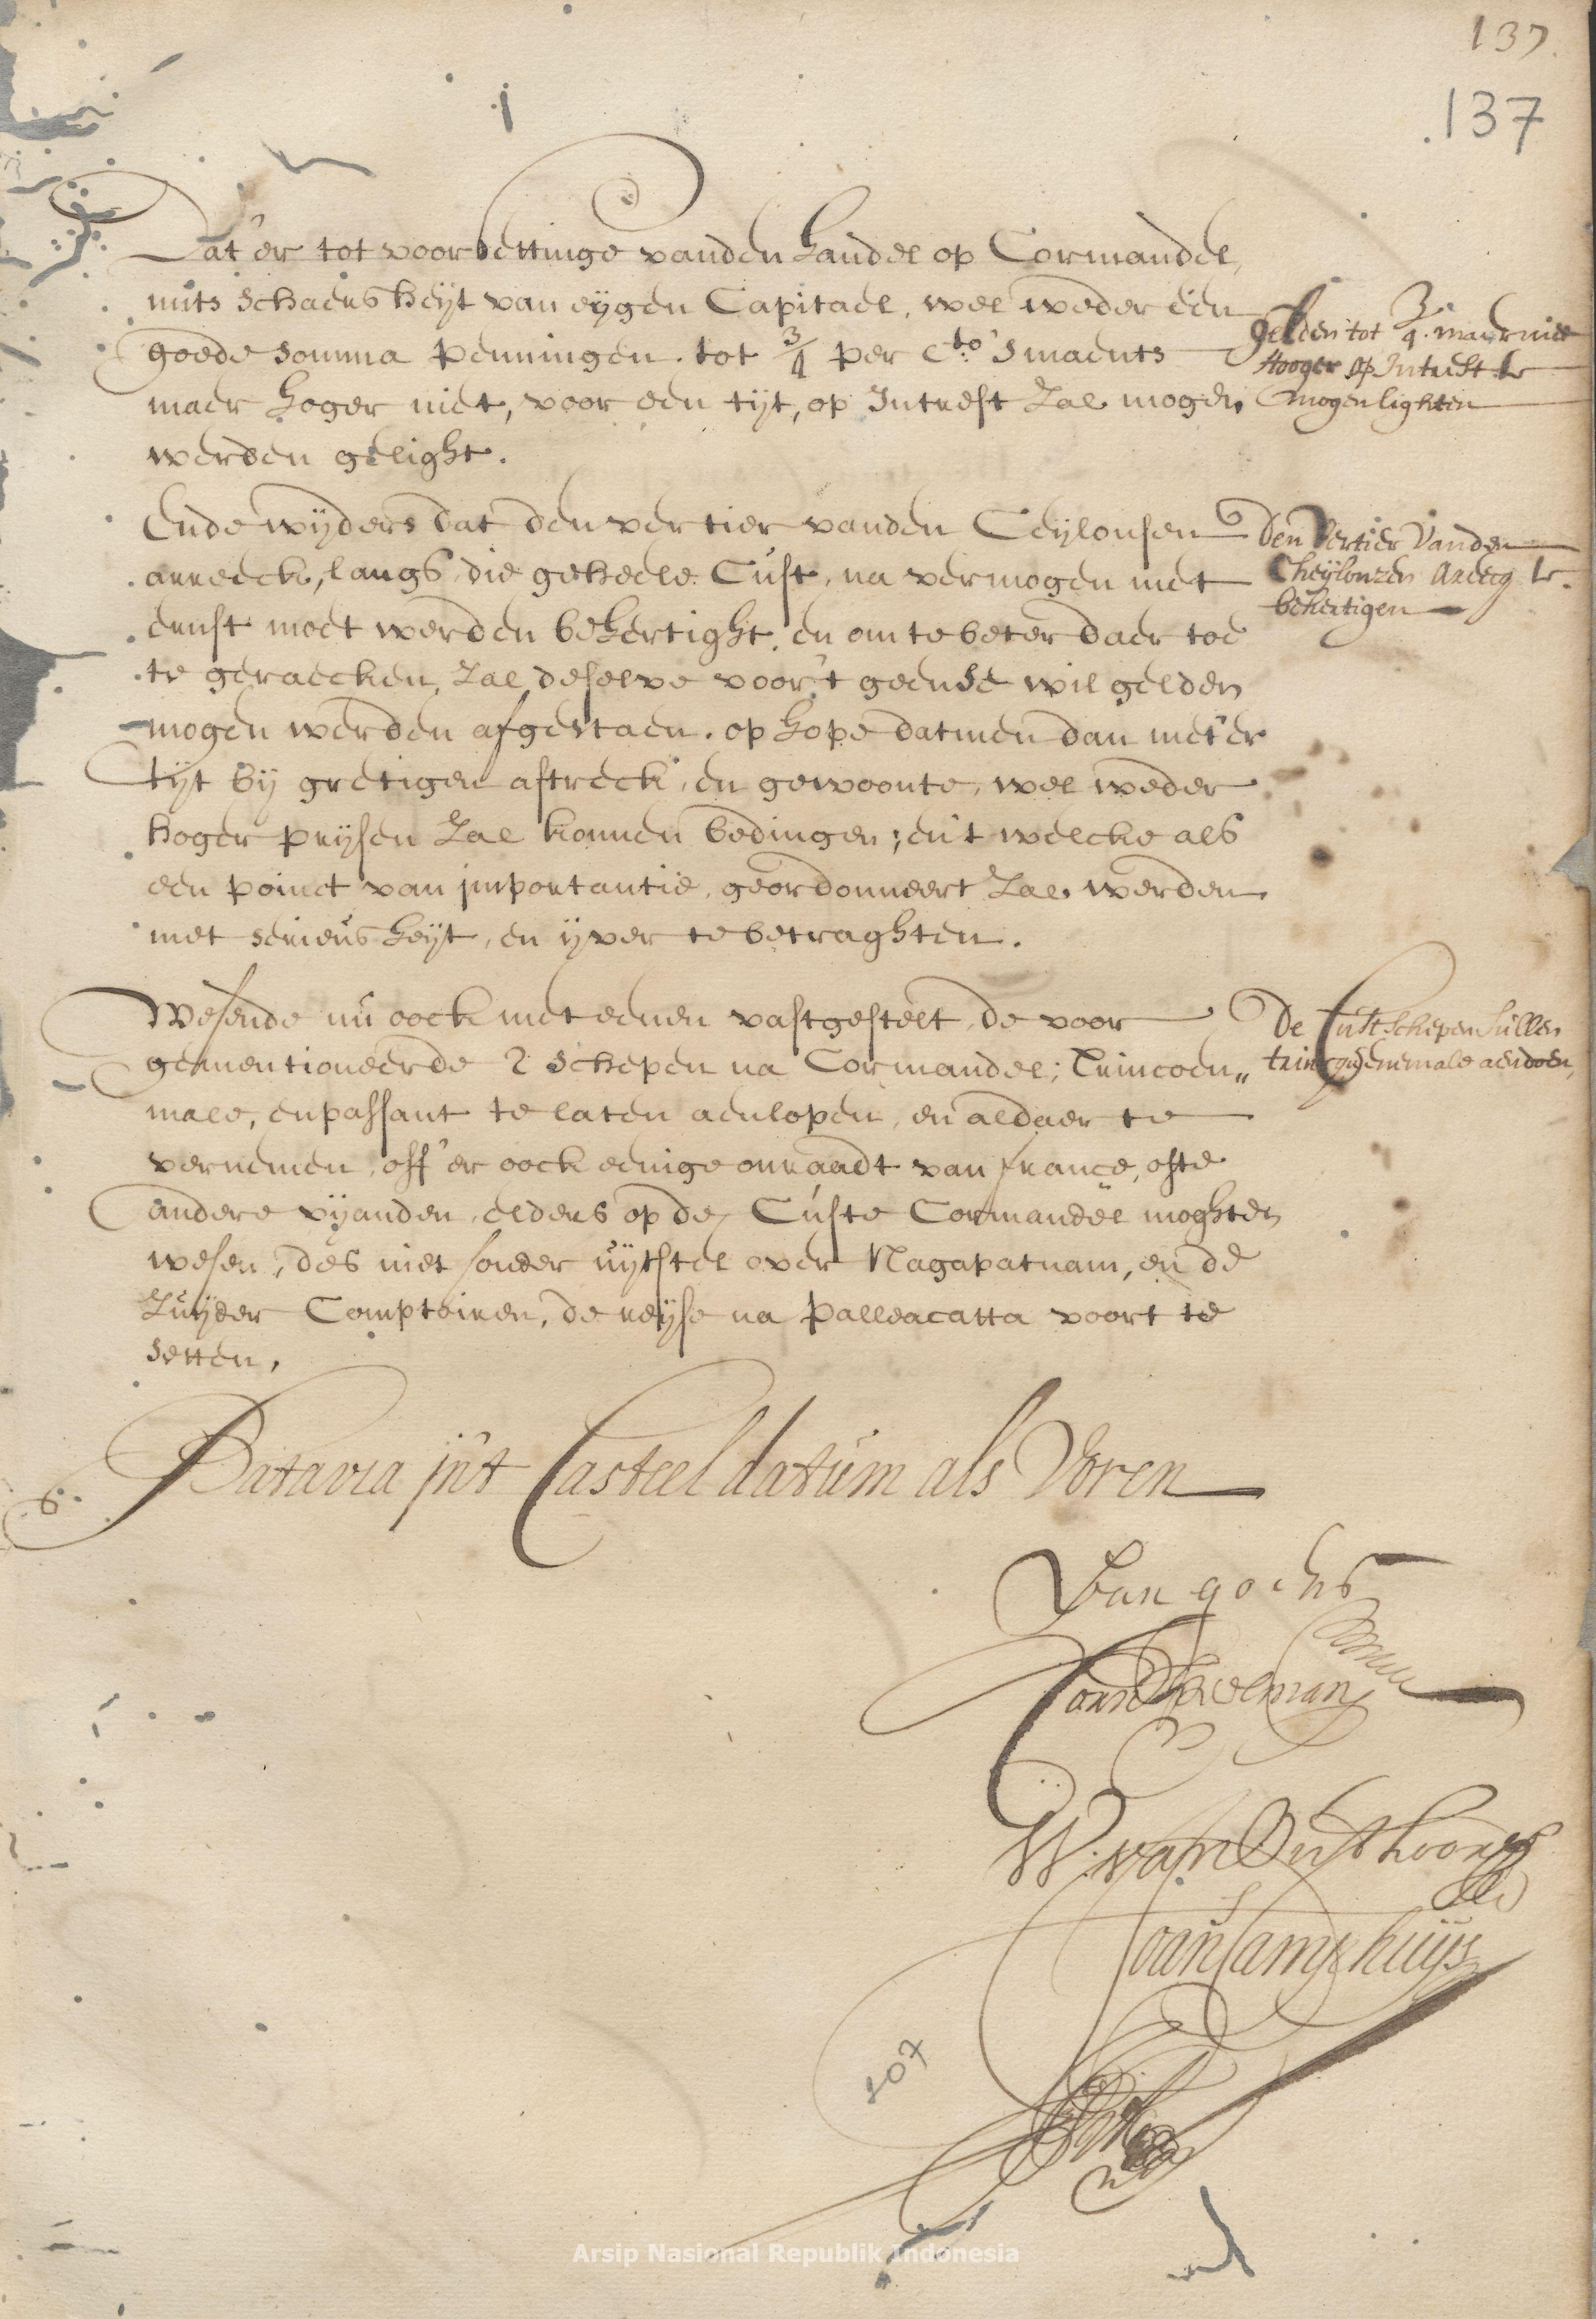 137
137
Dat'er tot voorsettinge vanden handel op Cormandel,
mits schaersheyt van eygen Capitael, wel weder een
goede somma penningen tot 3/4 per Cto 's maents
maer hoger niet, voor een tyt, op Intrest zal mogen
werden gelight.
gelden tot 3/4 maer niet
Hooger op Intrest te
mogen lighten
Ende wyders dat den vertier vanden Ceylonsen
arreeck, langs die geheele Cust, na vermogen met
ernst moet werden behertight, en om te beter daer toe
te geraecken, zal deselve voor 't geense wil gelden
mogen werden afgestaen, op hope datmen dan met'er
tyt by gretigen aftreck, en gewoonte, wel weder
hoger prysen zal konnen bedingen; en 't welcke als
een poinct van importantie, geordonneert zal werden
met serieusheyt, en yver te betraghten.
Den Vertier Vanden
Cheylonzen Areecq te
behertigen
Wesende nu oock met eenen vastgestelt, de voor
gementioneerde 2 schepen na Cormandel; Trincoen„
male, enpassant te laten aenlopen, en aldaer te
vernemen, off'er oock eenige onraadt van france, ofte
andere vyanden, elders op de Custe Cormandel moghten
wesen, des niet sonder uytstel over Nagapatnam, en de
Zuyder Comptoiren, de reyse na Palleacatta voort te
setten,
De Cust schepen sullen
trincquenemale aendoen,
Batavia in't Casteel datum als Voren
Van goens
Joan
W. van Outhoorn
Joan Camphuys
207
Arsip Nasional Republik Indonesia